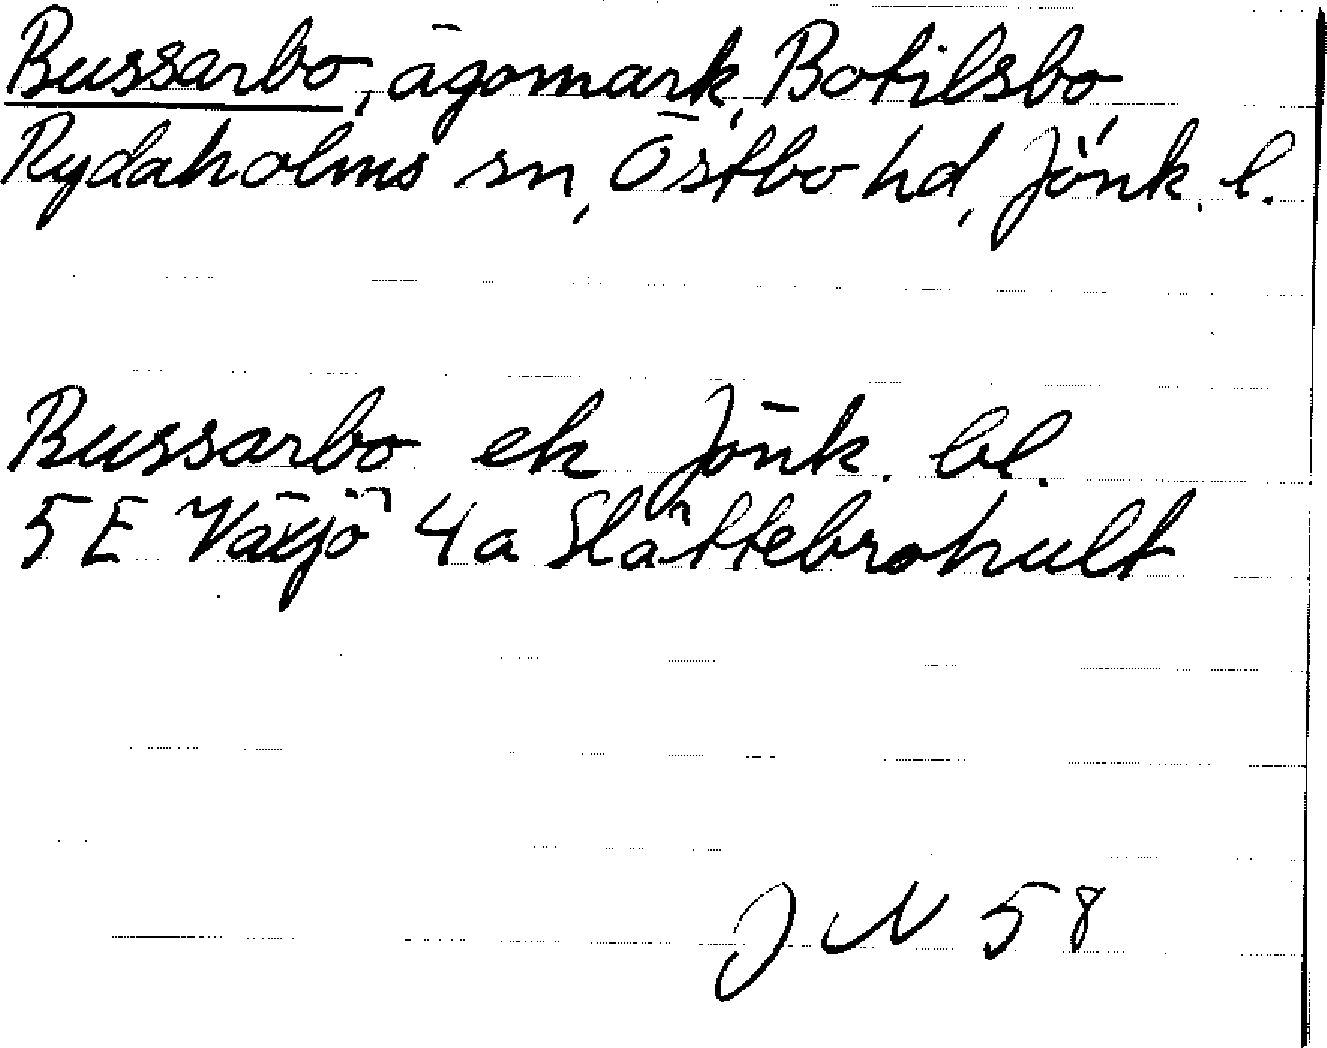 Bussarbo, ägomark, Botilsbo,
Rydaholms sn, Östbo hd, Jönk. l.
Bussarbo ek Jönk. bl.
5 E Växjö 4a Slättebrohult
J N 58